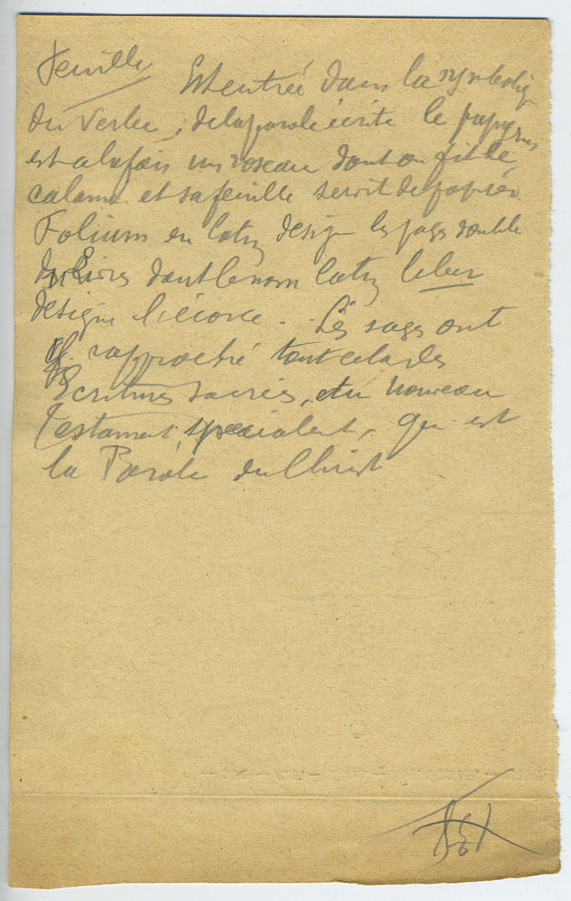 Feuille Est entrée dans la symboliq
du Verbe, de la parole écrite le papyrus
est a la fois un roseau dont on fit le
calame et sa feuille servit de papier
Folium en latin désigne les pages double
des Livres dont le nom latin liber
désigne l'écorce. Les sages ont
rapproché tout cela des
Ecritures Sacrées, et du Nouveau
Testament, spécialent, qui est
la Parole du Christ